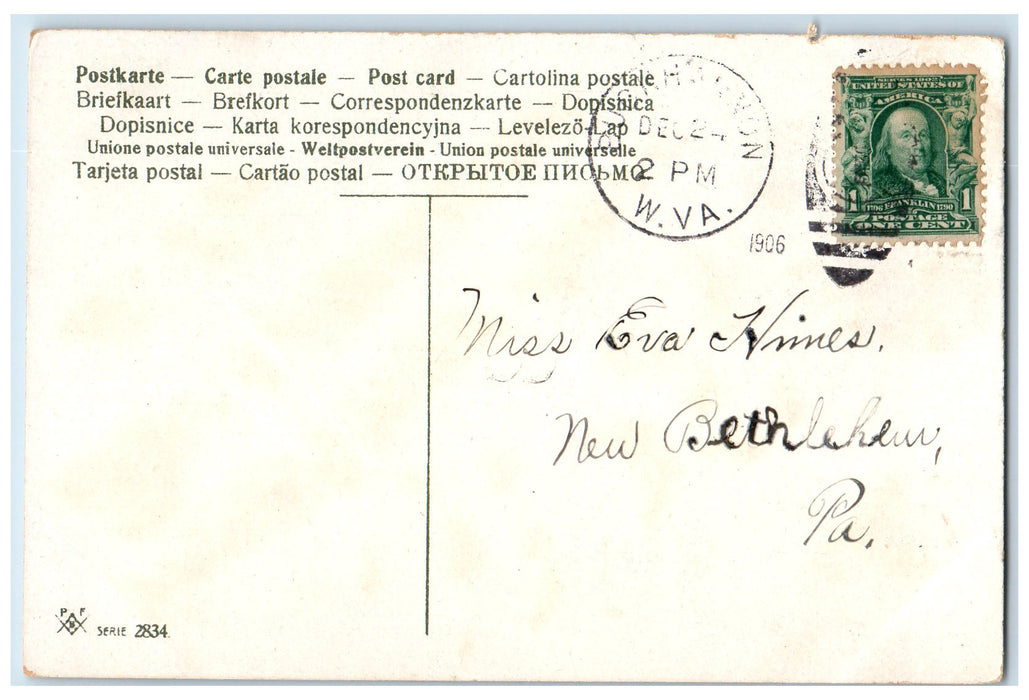 Postkarte — Carte postale — Post card — Cartolina postale
Briefkaart — Brefkort — Correspondenzkarte — Dopisnica
Dopisnice — Karta korespondencyjna — Levelező-Lap
Unione postale universale - Weltpostverein - Union postale universelle
Tarjeta postal — Cartão postal — ОТКРЫТОЕ ПИСЬМО
BUCKHANNON
DEC 24
2 PM
W. VA.
1906
SERIES 1902
UNITED STATES OF
AMERICA
1706 FRANKLIN 1790
1 POSTAGE 1
ONE CENT
Miss Eva Himes.
New Bethlehem,
Pa.
P F
B
SERIE 2834.